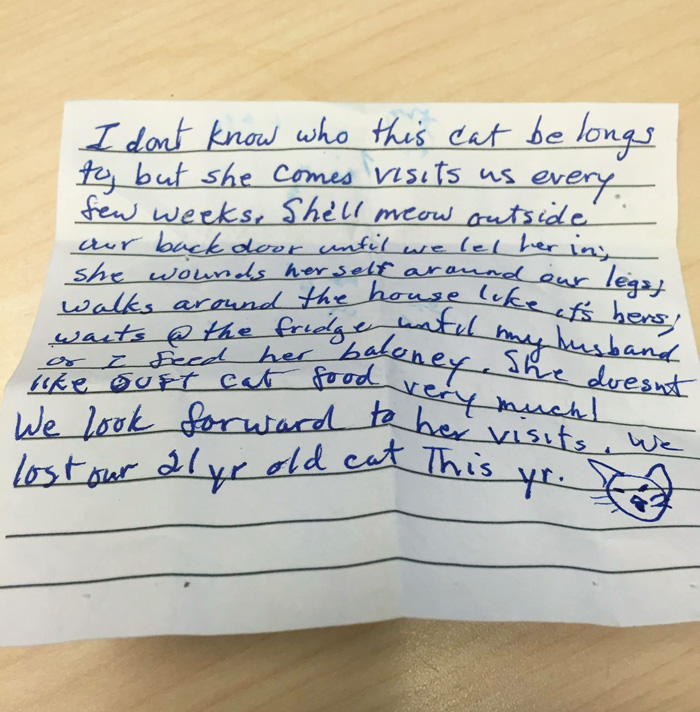 I dont know who this cat belongs
to, but she comes visits us every
few weeks. She'll meow outside
our back door until we let her in;
she wounds herself around our legs;
walks around the house like it's hers;
waits @ the fridge until my husband
or I feed her baloney. She doesnt
like our cat food very much!
We look forward to her visits. We
lost our 21 yr old cat This yr.